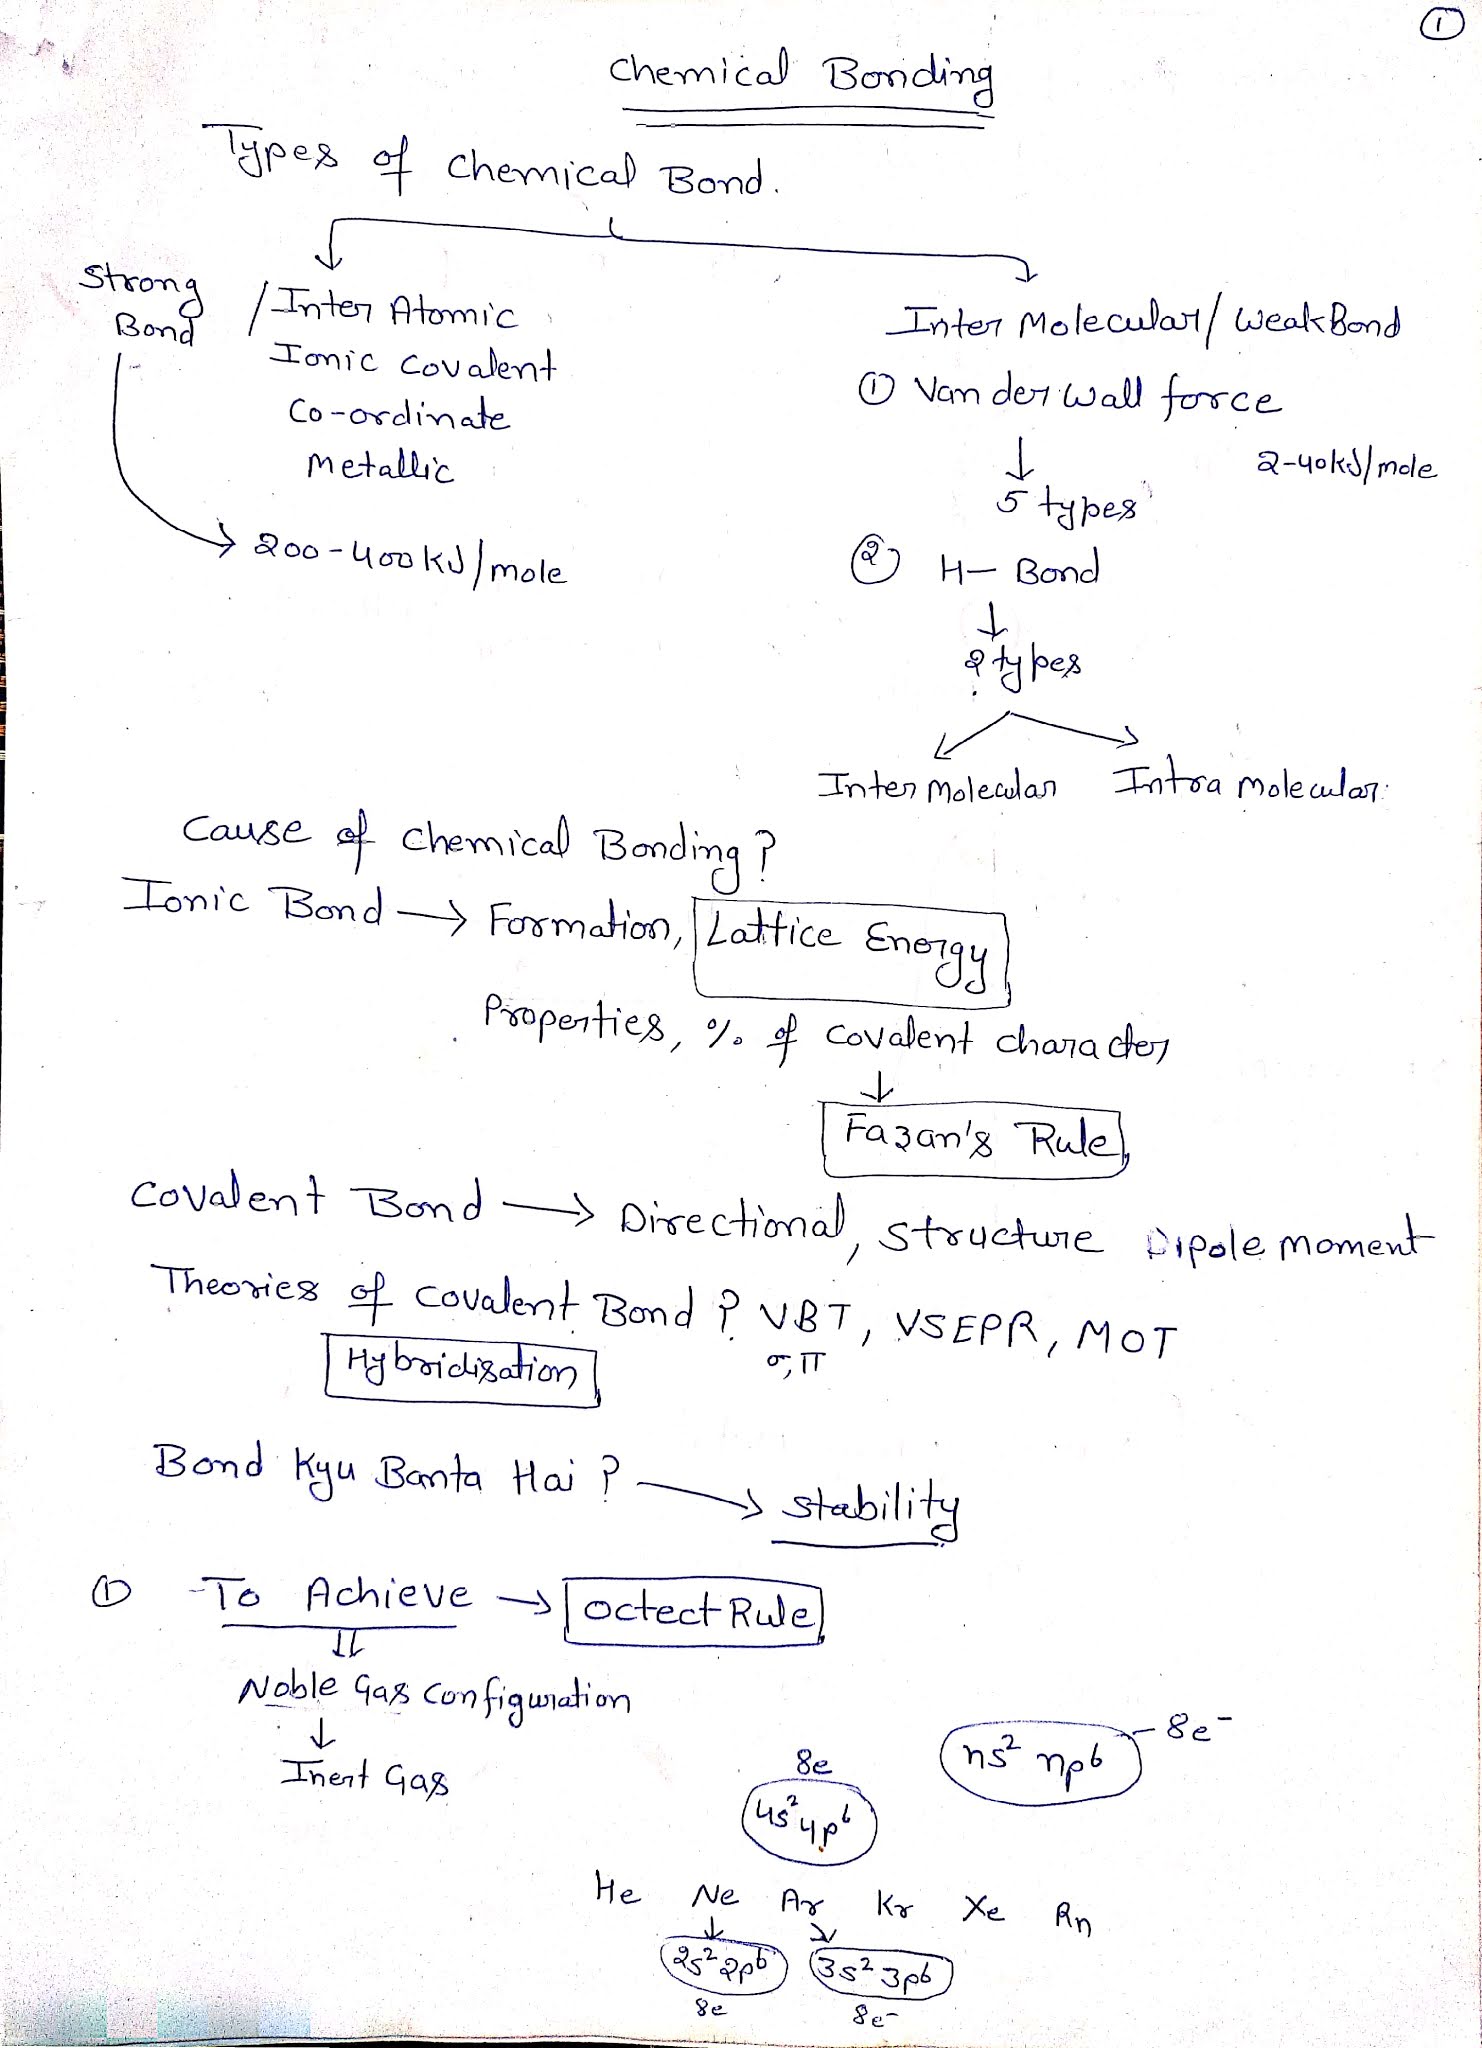 ①
Chemical Bonding
Types of Chemical Bond.
Strong Bond / Inter Atomic
Ionic Covalent
Co-ordinate
Metallic
→ 200-400 kJ/mole
Inter Molecular / Weak Bond
① Van der Wall force
↓
2-40kJ/mole
5 types
② H- Bond
↓
2 types
Inter Molecular Intra Molecular
Cause of Chemical Bonding?
Ionic Bond → Formation, Lattice Energy
Properties, % of covalent character
↓
Fazan's Rule
Covalent Bond → Directional, Structure Dipole moment
Theories of Covalent Bond? VBT, VSEPR, MOT
Hybridisation σ, π
Bond Kyu Banta Hai? → Stability
① To Achieve → Octect Rule
⇓
Noble Gas Configuration
↓
Inert Gas
ns² np⁶ - 8e⁻
8e
4s² 4p⁶
He Ne Ar Kr Xe Rn
2s² 2p⁶ 3s² 3p⁶
8e 8e⁻